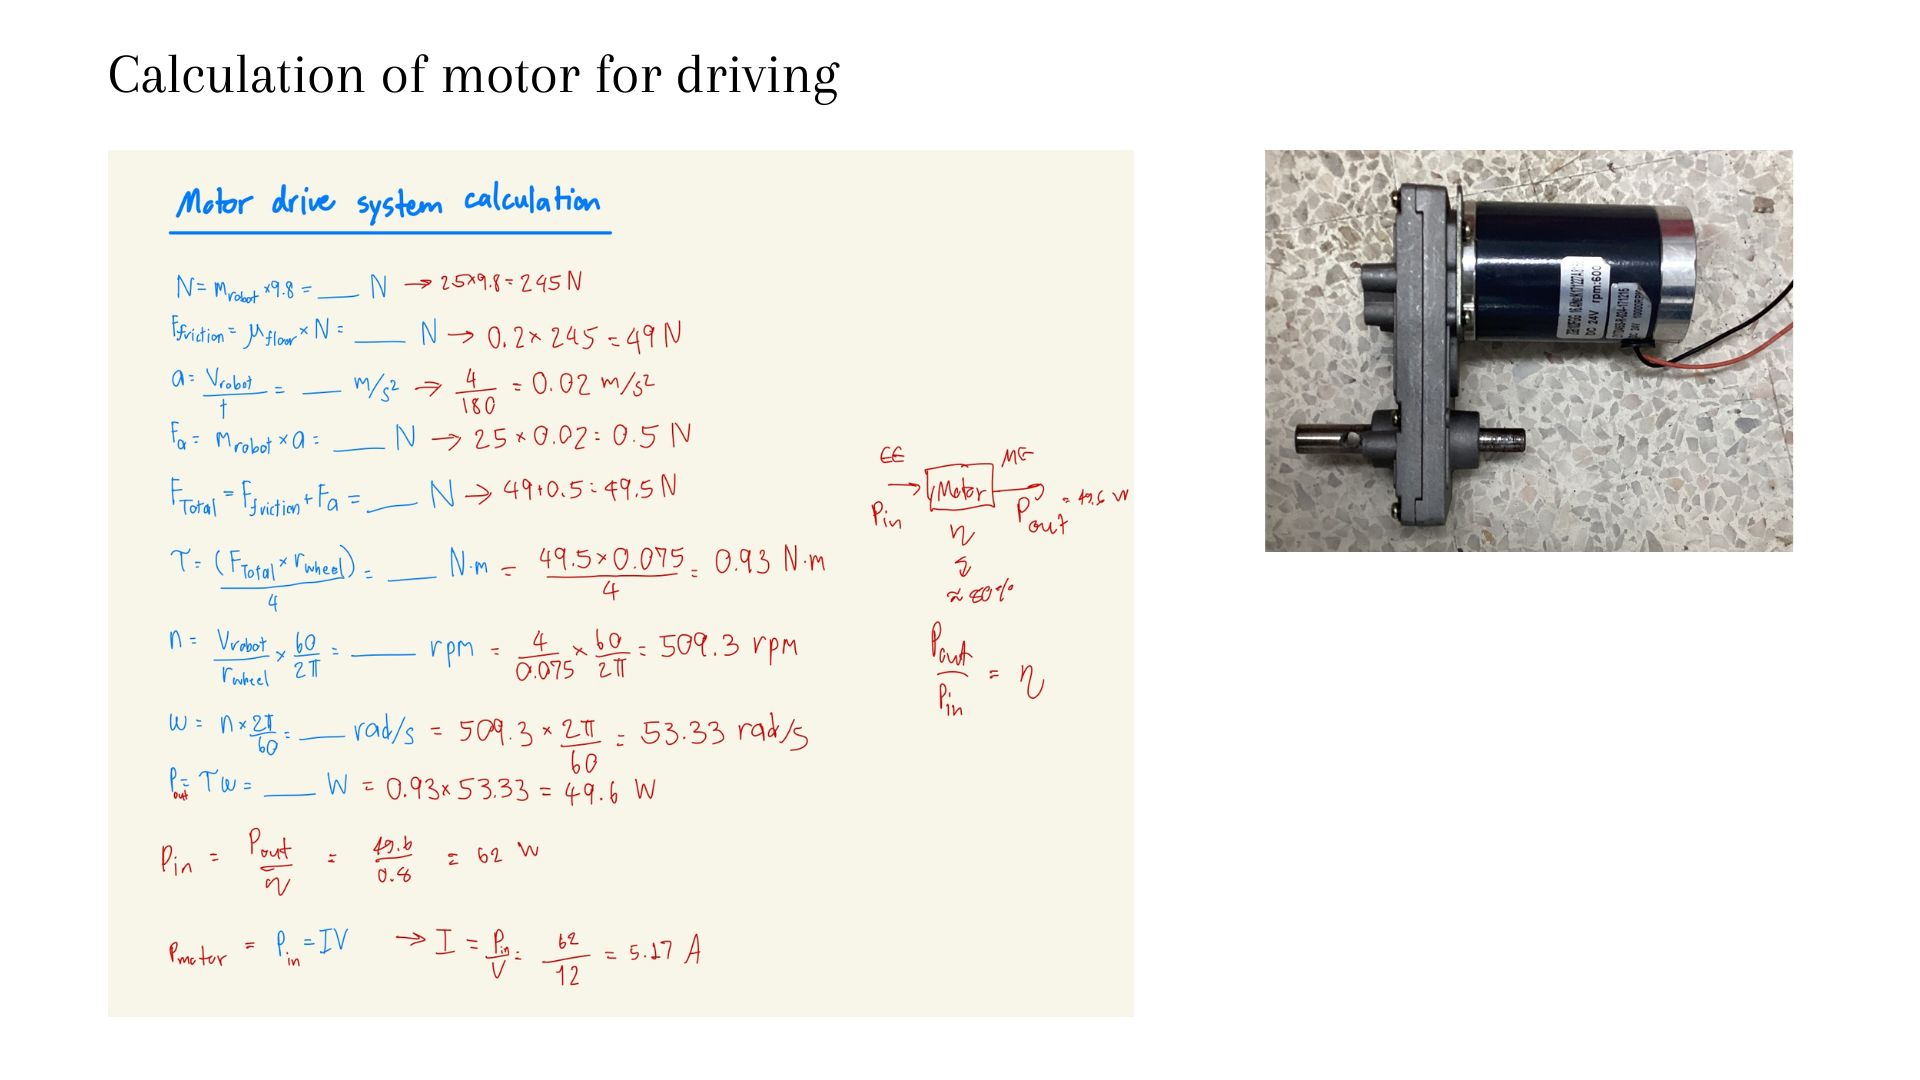 Calculation of motor for driving
Motor drive system calculation
N = m_robot × 9.8 = ___ N → 25×9.8 = 245 N
F_friction = μ_floor × N = ___ N → 0.2 × 245 = 49 N
a = V_robot / t = ___ m/s² → 4/180 = 0.02 m/s²
F_a = m_robot × a = ___ N → 25 × 0.02 = 0.5 N
F_Total = F_friction + F_a = ___ N → 49+0.5 = 49.5 N
τ = (F_Total × r_wheel) / 4 = ___ N·m = 49.5×0.075 / 4 = 0.93 N·m
n = V_robot / r_wheel × 60/2π = ___ rpm = 4/0.075 × 60/2π = 509.3 rpm
ω = n × 2π/60 = ___ rad/s = 509.3 × 2π/60 = 53.33 rad/s
P_out = τω = ___ W = 0.93×53.33 = 49.6 W
P_in = P_out / η = 49.6 / 0.8 = 62 W
P_motor = P_in = IV → I = P_in / V = 62/12 = 5.17 A
EE ME
→ Motor →
P_in P_out = 49.6 W
η
≈ 80%
P_out / P_in = η
DC 24V rpm:600